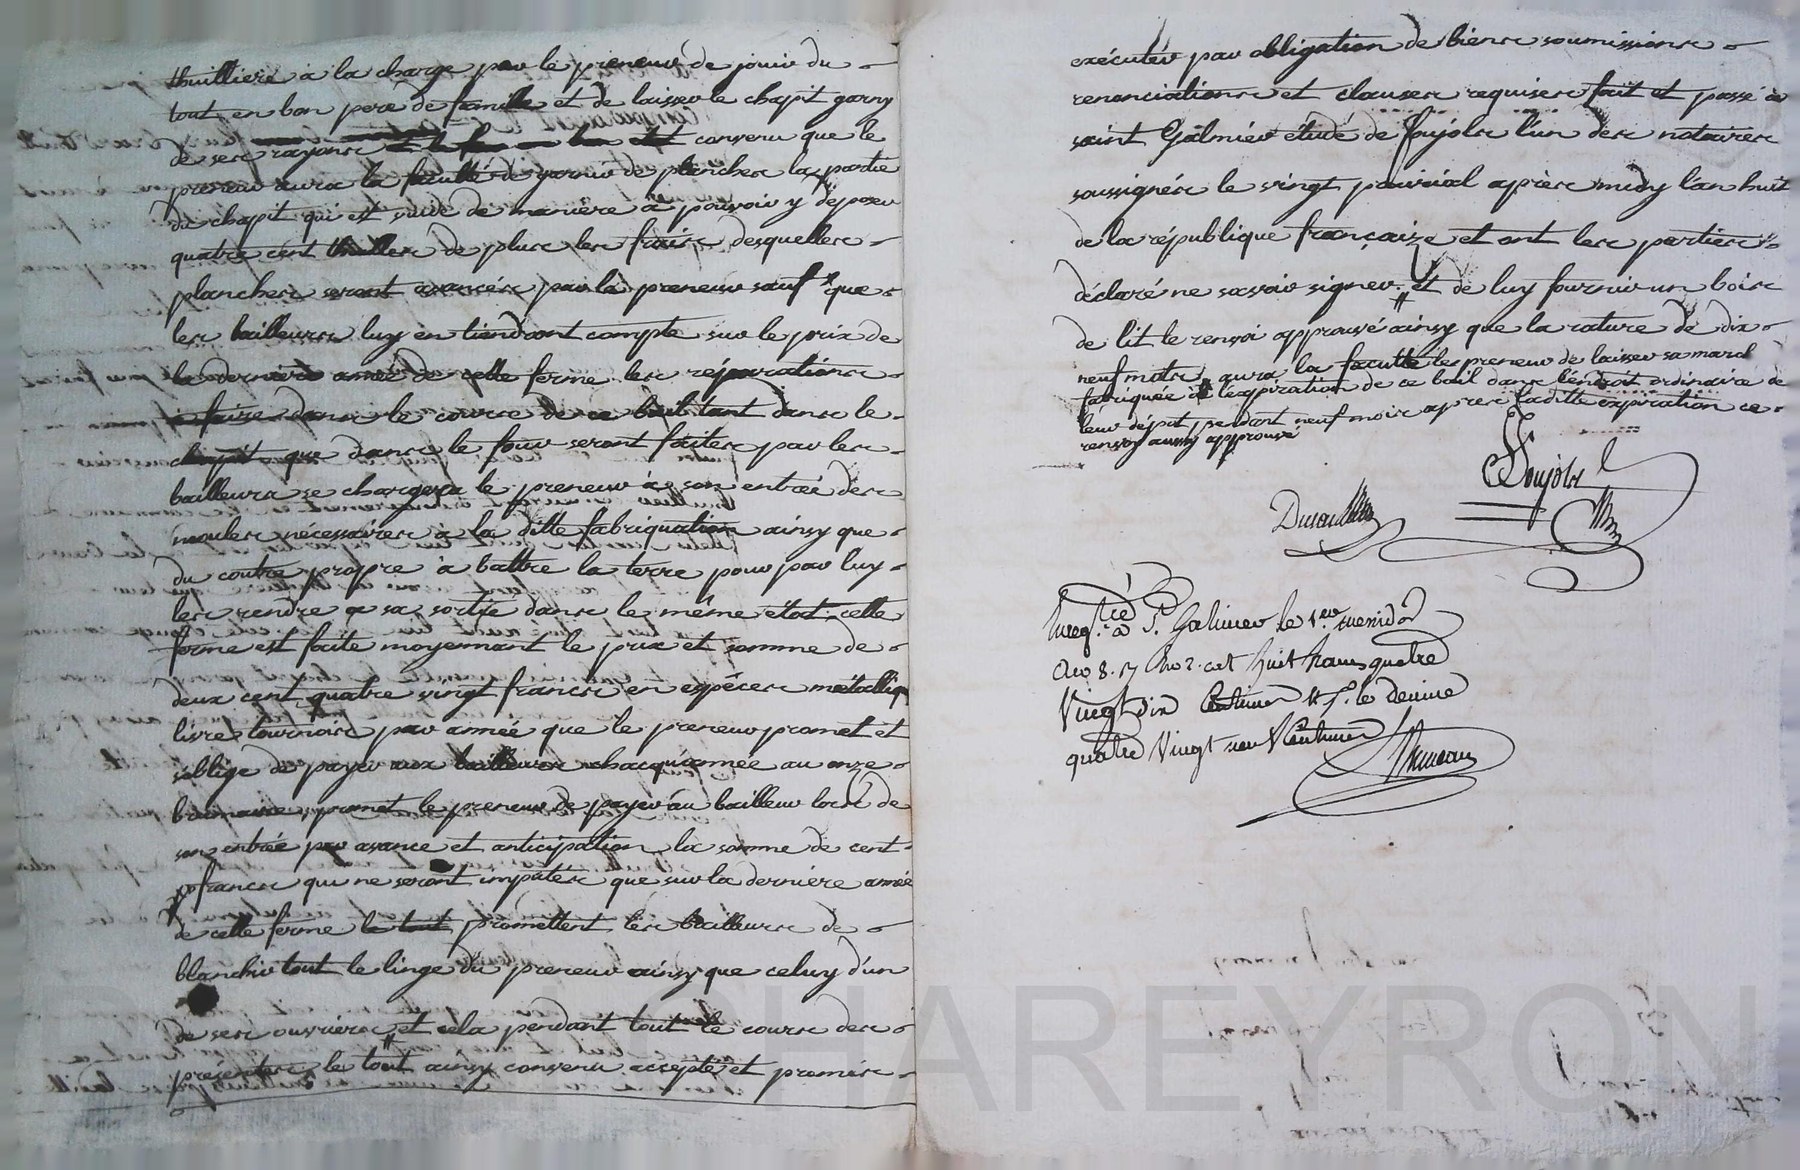 thuilliere à la charge par le preneur de jouir du
tout en bon pere de famille et de laisser le chapit garny
de ses rayons convenu que le
preneur aura la faculté de garnir de plancher la partie
du chapit qui est vuide de manière à pouvoir y déposer
quatre cent thuilles de plus les frais desquelles
planchers seront avancés par le preneur sauf que
les bailleurs luy en tiendront compte sur le prix de
la dernière année de cette ferme les réparations
à faire dans le cours de ce bail tant dans le
chapit que dans le four seront faites par les
bailleurs se chargera le preneur à son entrée des
moules nécessaires à la ditte fabriquation ainsy que
du coutre propre à battre la terre pour par luy
les rendre a sa sortie dans le même état cette
ferme est faite moyennant le prix et somme de
deux cent quatre vingt francs en espèces métallique
livre tournois par année que le preneur promet et
s'oblige de payer aux bailleurs chacqu'année au onze
brumaire promet le preneur de payer au bailleur lors de
son entrée par avance et anticipation la somme de cent
francs qui ne seront imputés que sur la dernière année
de cette ferme le tout promettent les bailleurs de
blanchir tout le linge du preneur ainsy que celuy d'un
de ses ouvriers et cela pendant tout le cours des
présentes le tout ainsy convenu accepté et promis
exécuter par obligation de biens soumissions
renonciations et clauses requises fait et passé à
saint Galmier étude de Poujols l'un des notaires
soussignés le vingt prairial après midy l'an huit
de la république française et ont les parties
déclaré ne savoir signer et de luy fournir un bois
de lit le renvoi approuvé ainsy que la rature de dix
neuf mots aura la faculté les preneur de laisser sa march
fabriquée à l'éxpiration de ce bail dans l'endroit ordinaire de
leur dépit pendant neuf mois apres laditte expiration ce
renvoy aussy approuvé
Poujols
Enregtré à St Galmier le 1er messidor
an 8. r cat huit francs quatre
Vingt dix Centimes le deuime
quatre Vingt neuf Centimes
CHAREYRON